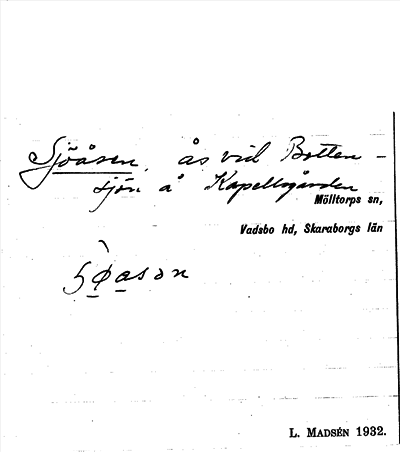 Sjöåsen, ås vid Botten-
sjön å Kapellsgården
Mölltorps sn,
Vadsbo hd, Skaraborgs län
L. MADSÉN 1932.